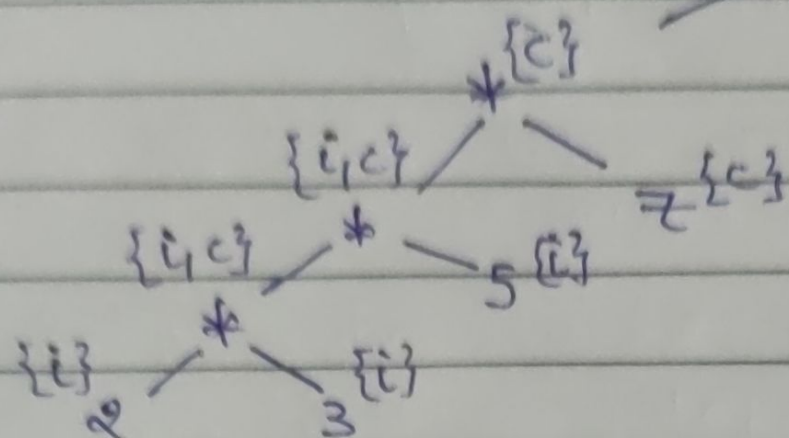 * {c}
{i,c}
7 {c}
{i,c} * 5 {i}
*
{i} 2 3 {i}